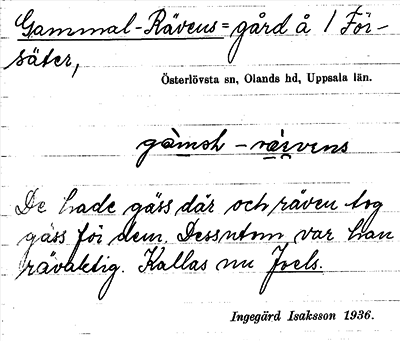 Gammal-Rävens = gård å 1 För-
säter,
Österlövsta sn, Olands hd, Uppsala län.
gàmɔl - rä̀vens
De hade gäss där och räven tog
gäss för dem. Dessutom var han
rävaktig. Kallas nu Joels.
Ingegärd Isaksson 1936.